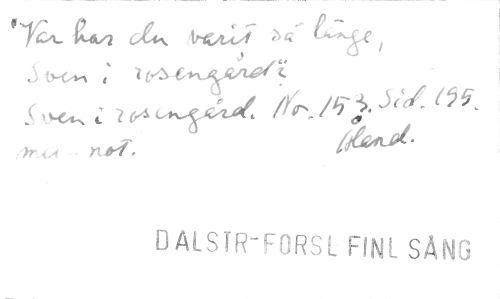 "Var har du varit så länge,
Sven i rosengård"?
Sven i rosengård. No. 153. Sid. 195.
mel-not. Åland.
DALSTR-FORSL FINL SÅNG